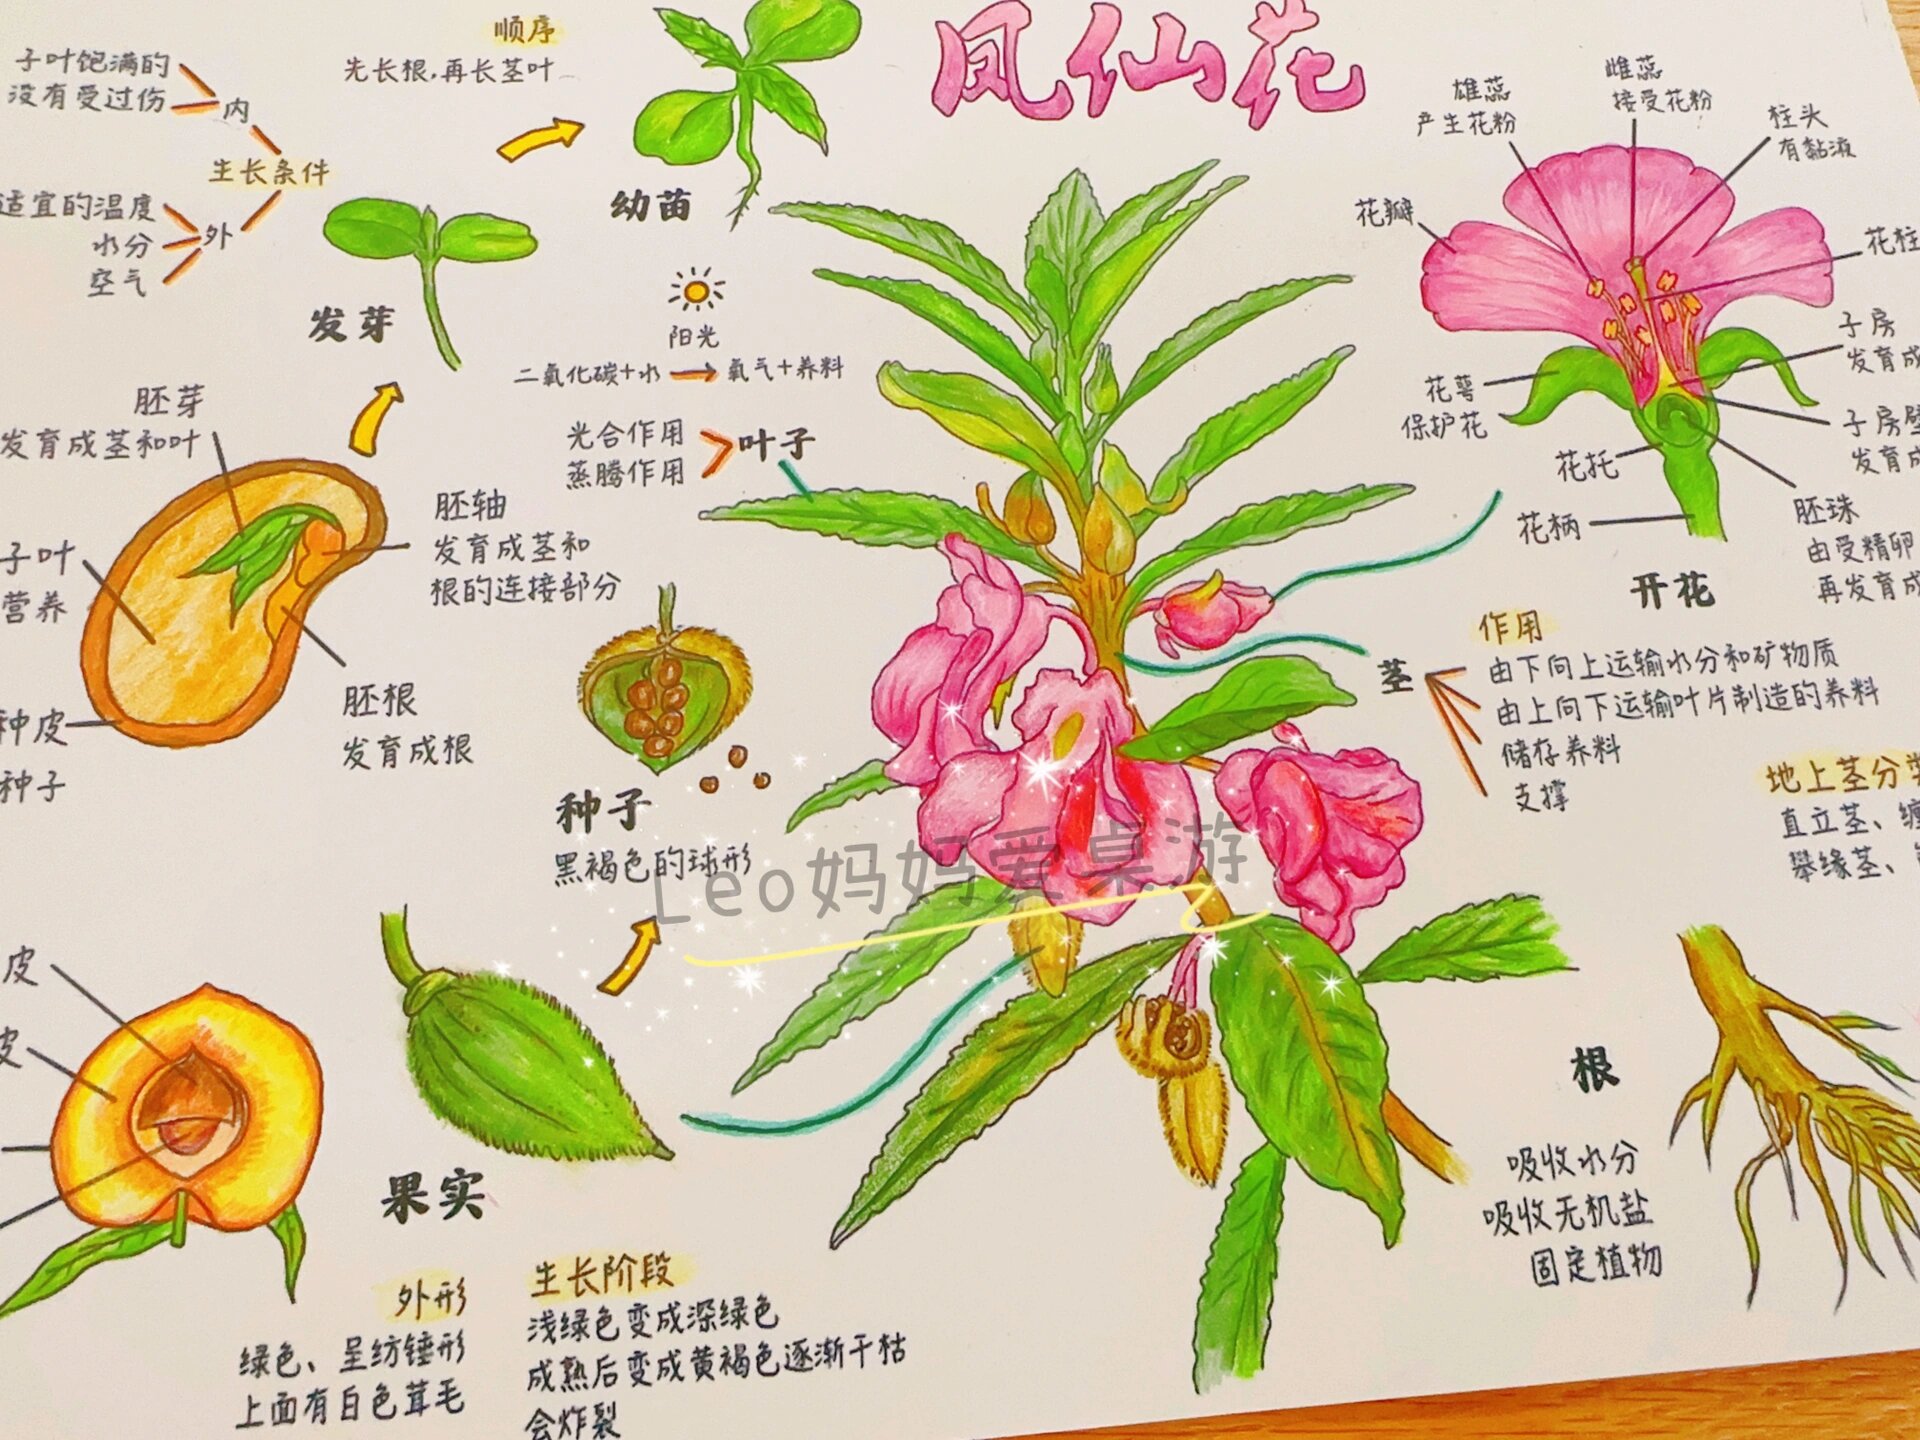 凤仙花
子叶饱满的
没有受过伤
内
生长条件
适宜的温度
水分
空气
外
顺序
先长根,再长茎叶
幼苗
发芽
阳光
二氧化碳+水
氧气+养料
光合作用
蒸腾作用
叶子
胚芽
发育成茎和叶
子叶
营养
胚轴
发育成茎和
根的连接部分
胚根
发育成根
种皮
种子
种子
黑褐色的球形
Leo妈妈爱桌游
皮
皮
果实
外形
绿色、呈纺锤形
上面有白色茸毛
生长阶段
浅绿色变成深绿色
成熟后变成黄褐色逐渐干枯
会炸裂
雄蕊
产生花粉
雌蕊
接受花粉
柱头
有黏液
花瓣
花柱
子房
发育成
花萼
保护花
子房壁
发育成
花托
花柄
胚珠
由受精卵
再发育成
开花
茎
作用
由下向上运输水分和矿物质
由上向下运输叶片制造的养料
储存养料
支撑
地上茎分类
直立茎、缠
攀缘茎、
根
吸收水分
吸收无机盐
固定植物